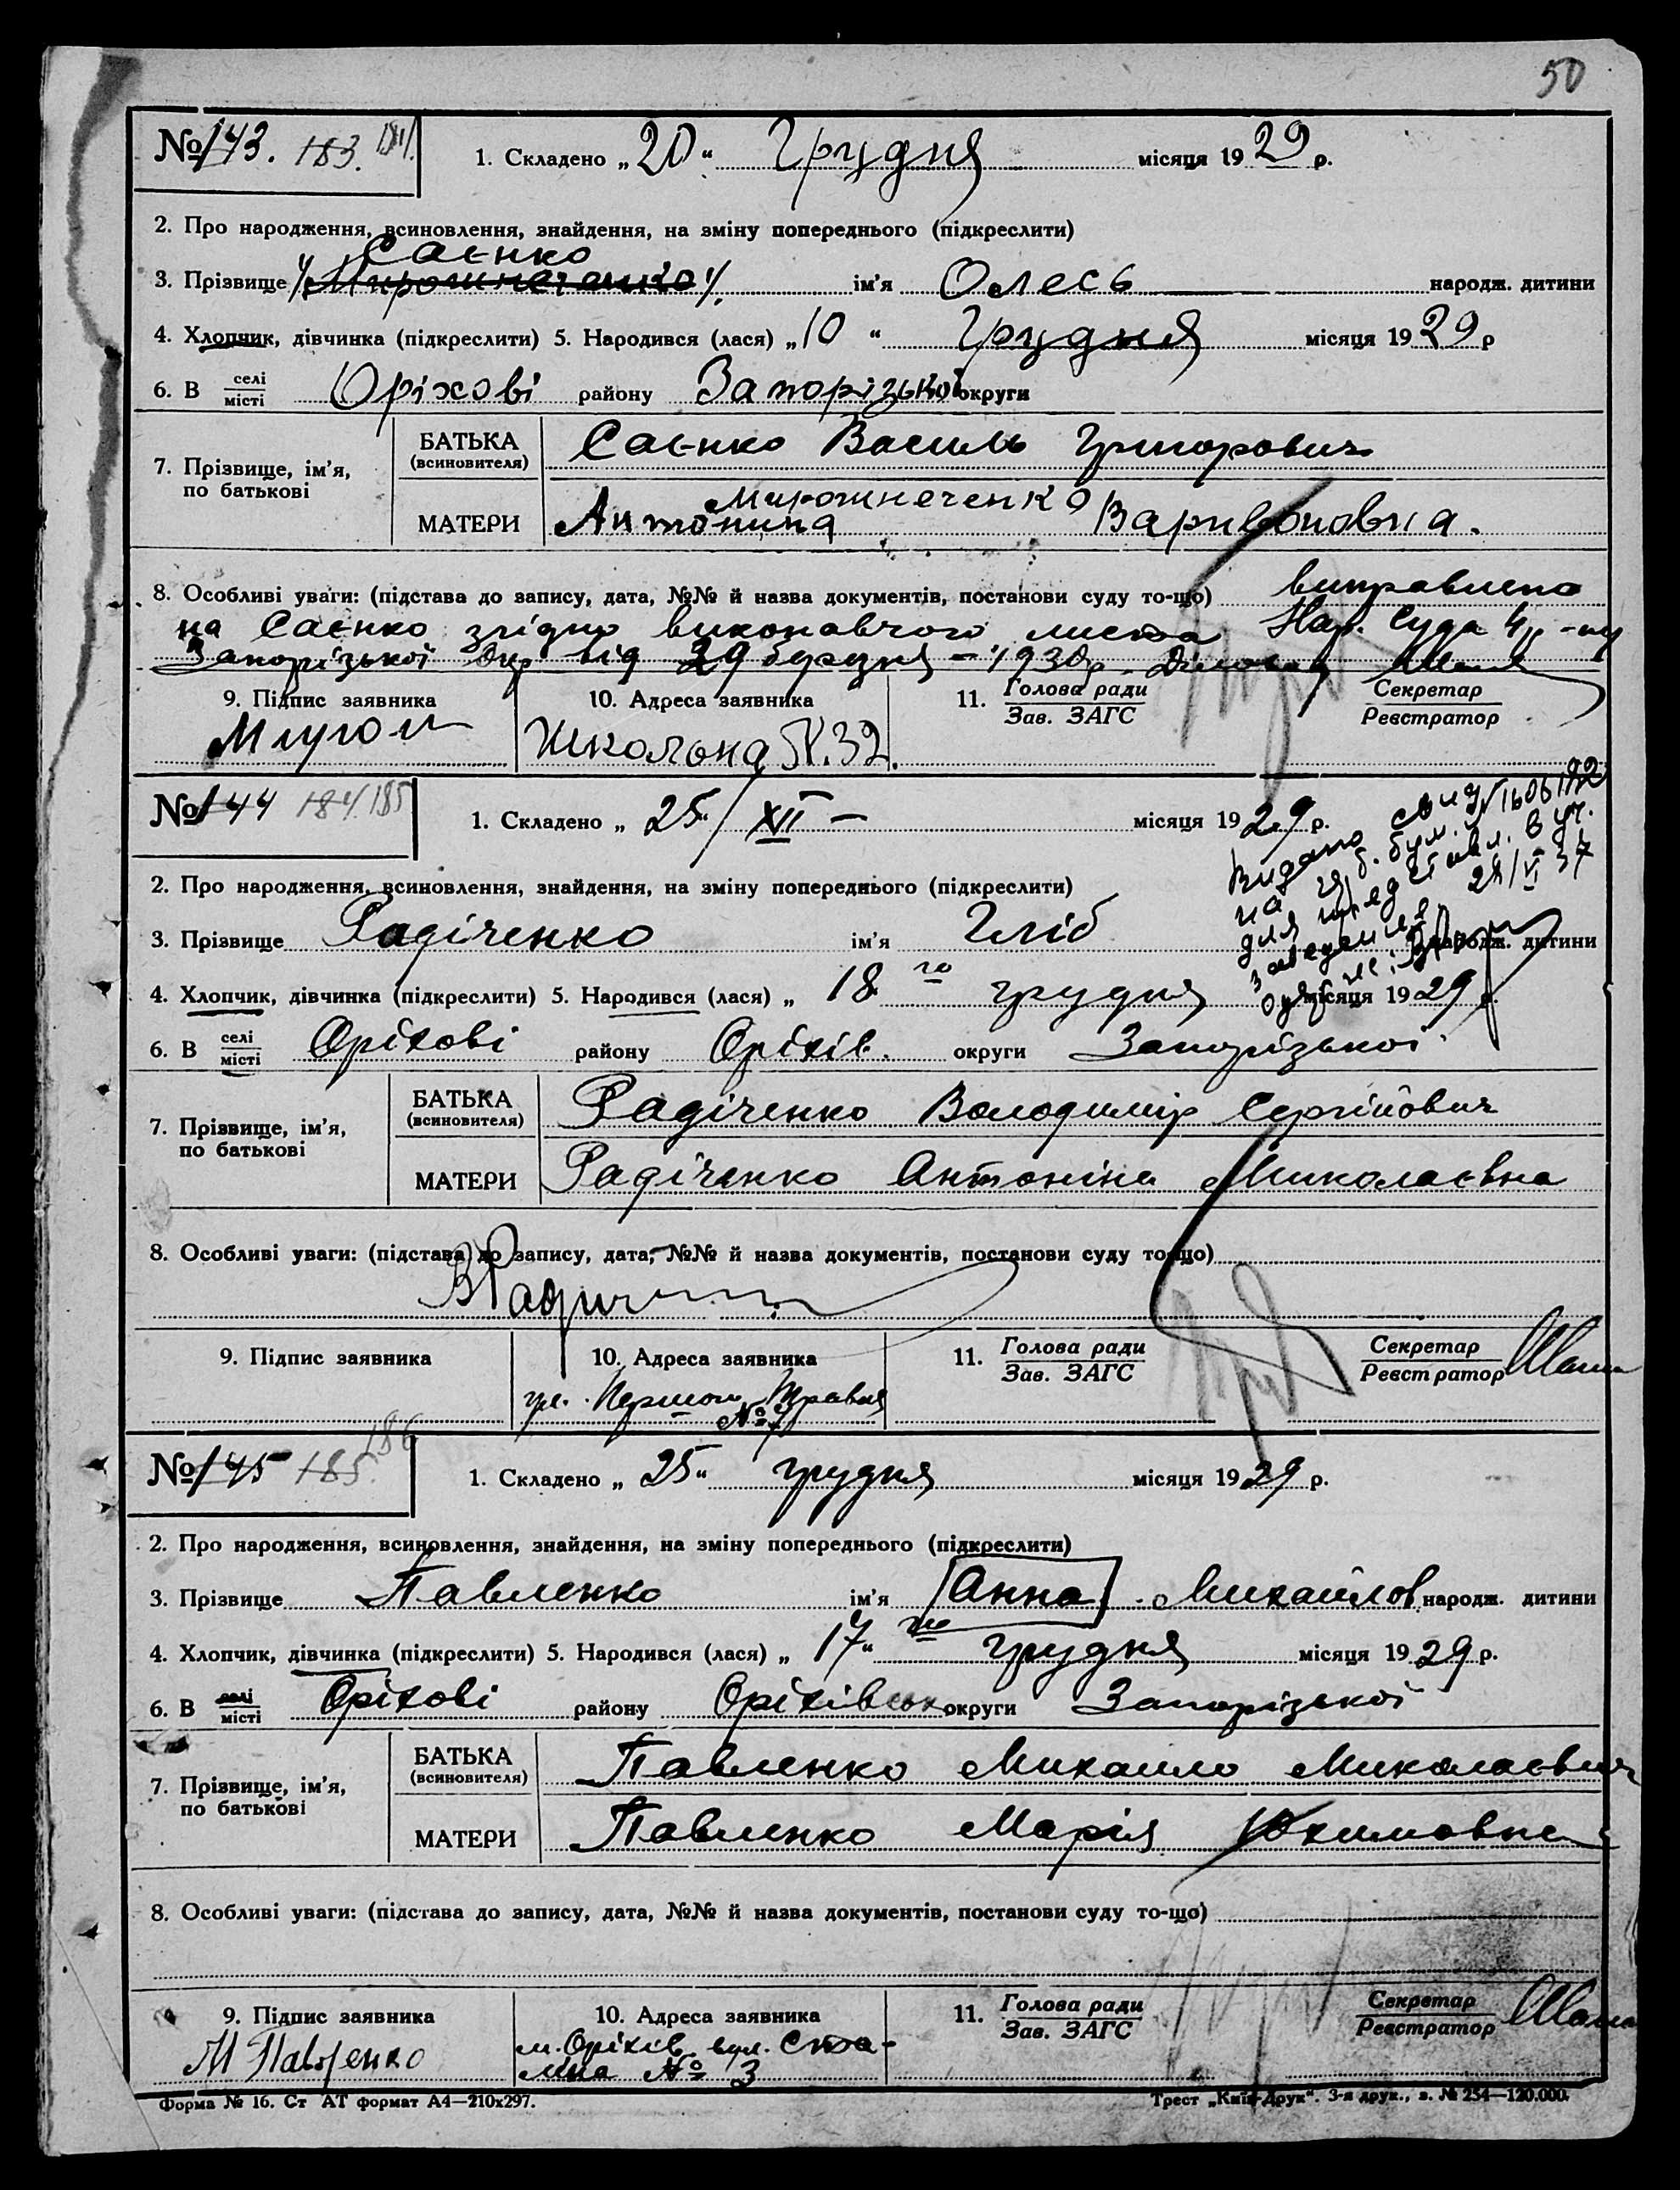 50
№ 143. 183. 184.
1. Складено „20“ Грудня місяця 1929 р.
2. Про народження, всиновлення, знайдення, на зміну попереднього (підкреслити)
Саєнко
3. Прізвище Мирошнеченко ім'я Олесь народж. дитини
4. Хлопчик, дівчинка (підкреслити) 5. Народився (лася) „10“ Грудня місяця 1929 р
6. В селі/місті Оріхові району Запорізької округи
7. Прізвище, ім'я, по батькові
БАТЬКА (всиновителя) Саєнко Василь Григорович
Мирошнеченко
МАТЕРИ Антонина Варивоновна.
8. Особливі уваги: (підстава до запису, дата, №№ й назва документів, постанови суду то-що) виправлено
на Саєнко згідно виконавчого листа Нар. Суда
Запорізької Окр від 29 1930р.
9. Підпис заявника
10. Адреса заявника Школьна №. 32.
11. Голова ради
Зав. ЗАГС
Секретар
Реєстратор
№ 144 184. 185
1. Складено „25“/XII – місяця 1929 р.
Видано
2. Про народження, всиновлення, знайдення, на зміну попереднього (підкреслити)
3. Прізвище Радіченко ім'я Гліб народж. дитини
4. Хлопчик, дівчинка (підкреслити) 5. Народився (лася) „18 го грудня місяця 1929 р.
6. В селі/місті Оріхові району Оріхів. округи Запорізької
7. Прізвище, ім'я, по батькові
БАТЬКА (всиновителя) Радіченко Володимір Сергійович
МАТЕРИ Радіченко Антоніна Миколаєвна
8. Особливі уваги: (підстава до запису, дата, №№ й назва документів, постанови суду то-що)
9. Підпис заявника
10. Адреса заявника
ул. Першого Травня
11. Голова ради
Зав. ЗАГС
Секретар
Реєстратор
№ 145 185. 186
1. Складено „25“ грудня місяця 1929 р.
2. Про народження, всиновлення, знайдення, на зміну попереднього (підкреслити)
3. Прізвище Павленко ім'я [Анна] Михайлов народж. дитини
4. Хлопчик, дівчинка (підкреслити) 5. Народився (лася) „17“ го грудня місяця 1929 р.
6. В селі/місті Оріхові району Оріхівськ округи Запорізької
7. Прізвище, ім'я, по батькові
БАТЬКА (всиновителя) Павленко Михайло Миколаєвич
МАТЕРИ Павленко Марія Юхимовна
8. Особливі уваги: (підстава до запису, дата, №№ й назва документів, постанови суду то-що)
9. Підпис заявника
М Павленко
10. Адреса заявника
м. Оріхів вул. Ста-
ліна № 3
11. Голова ради
Зав. ЗАГС
Секретар
Реєстратор
Форма № 16. Ст АТ формат А4—210х297.
Трест „Київ-Друк“. 3-я друк., з. № 254—120.000.